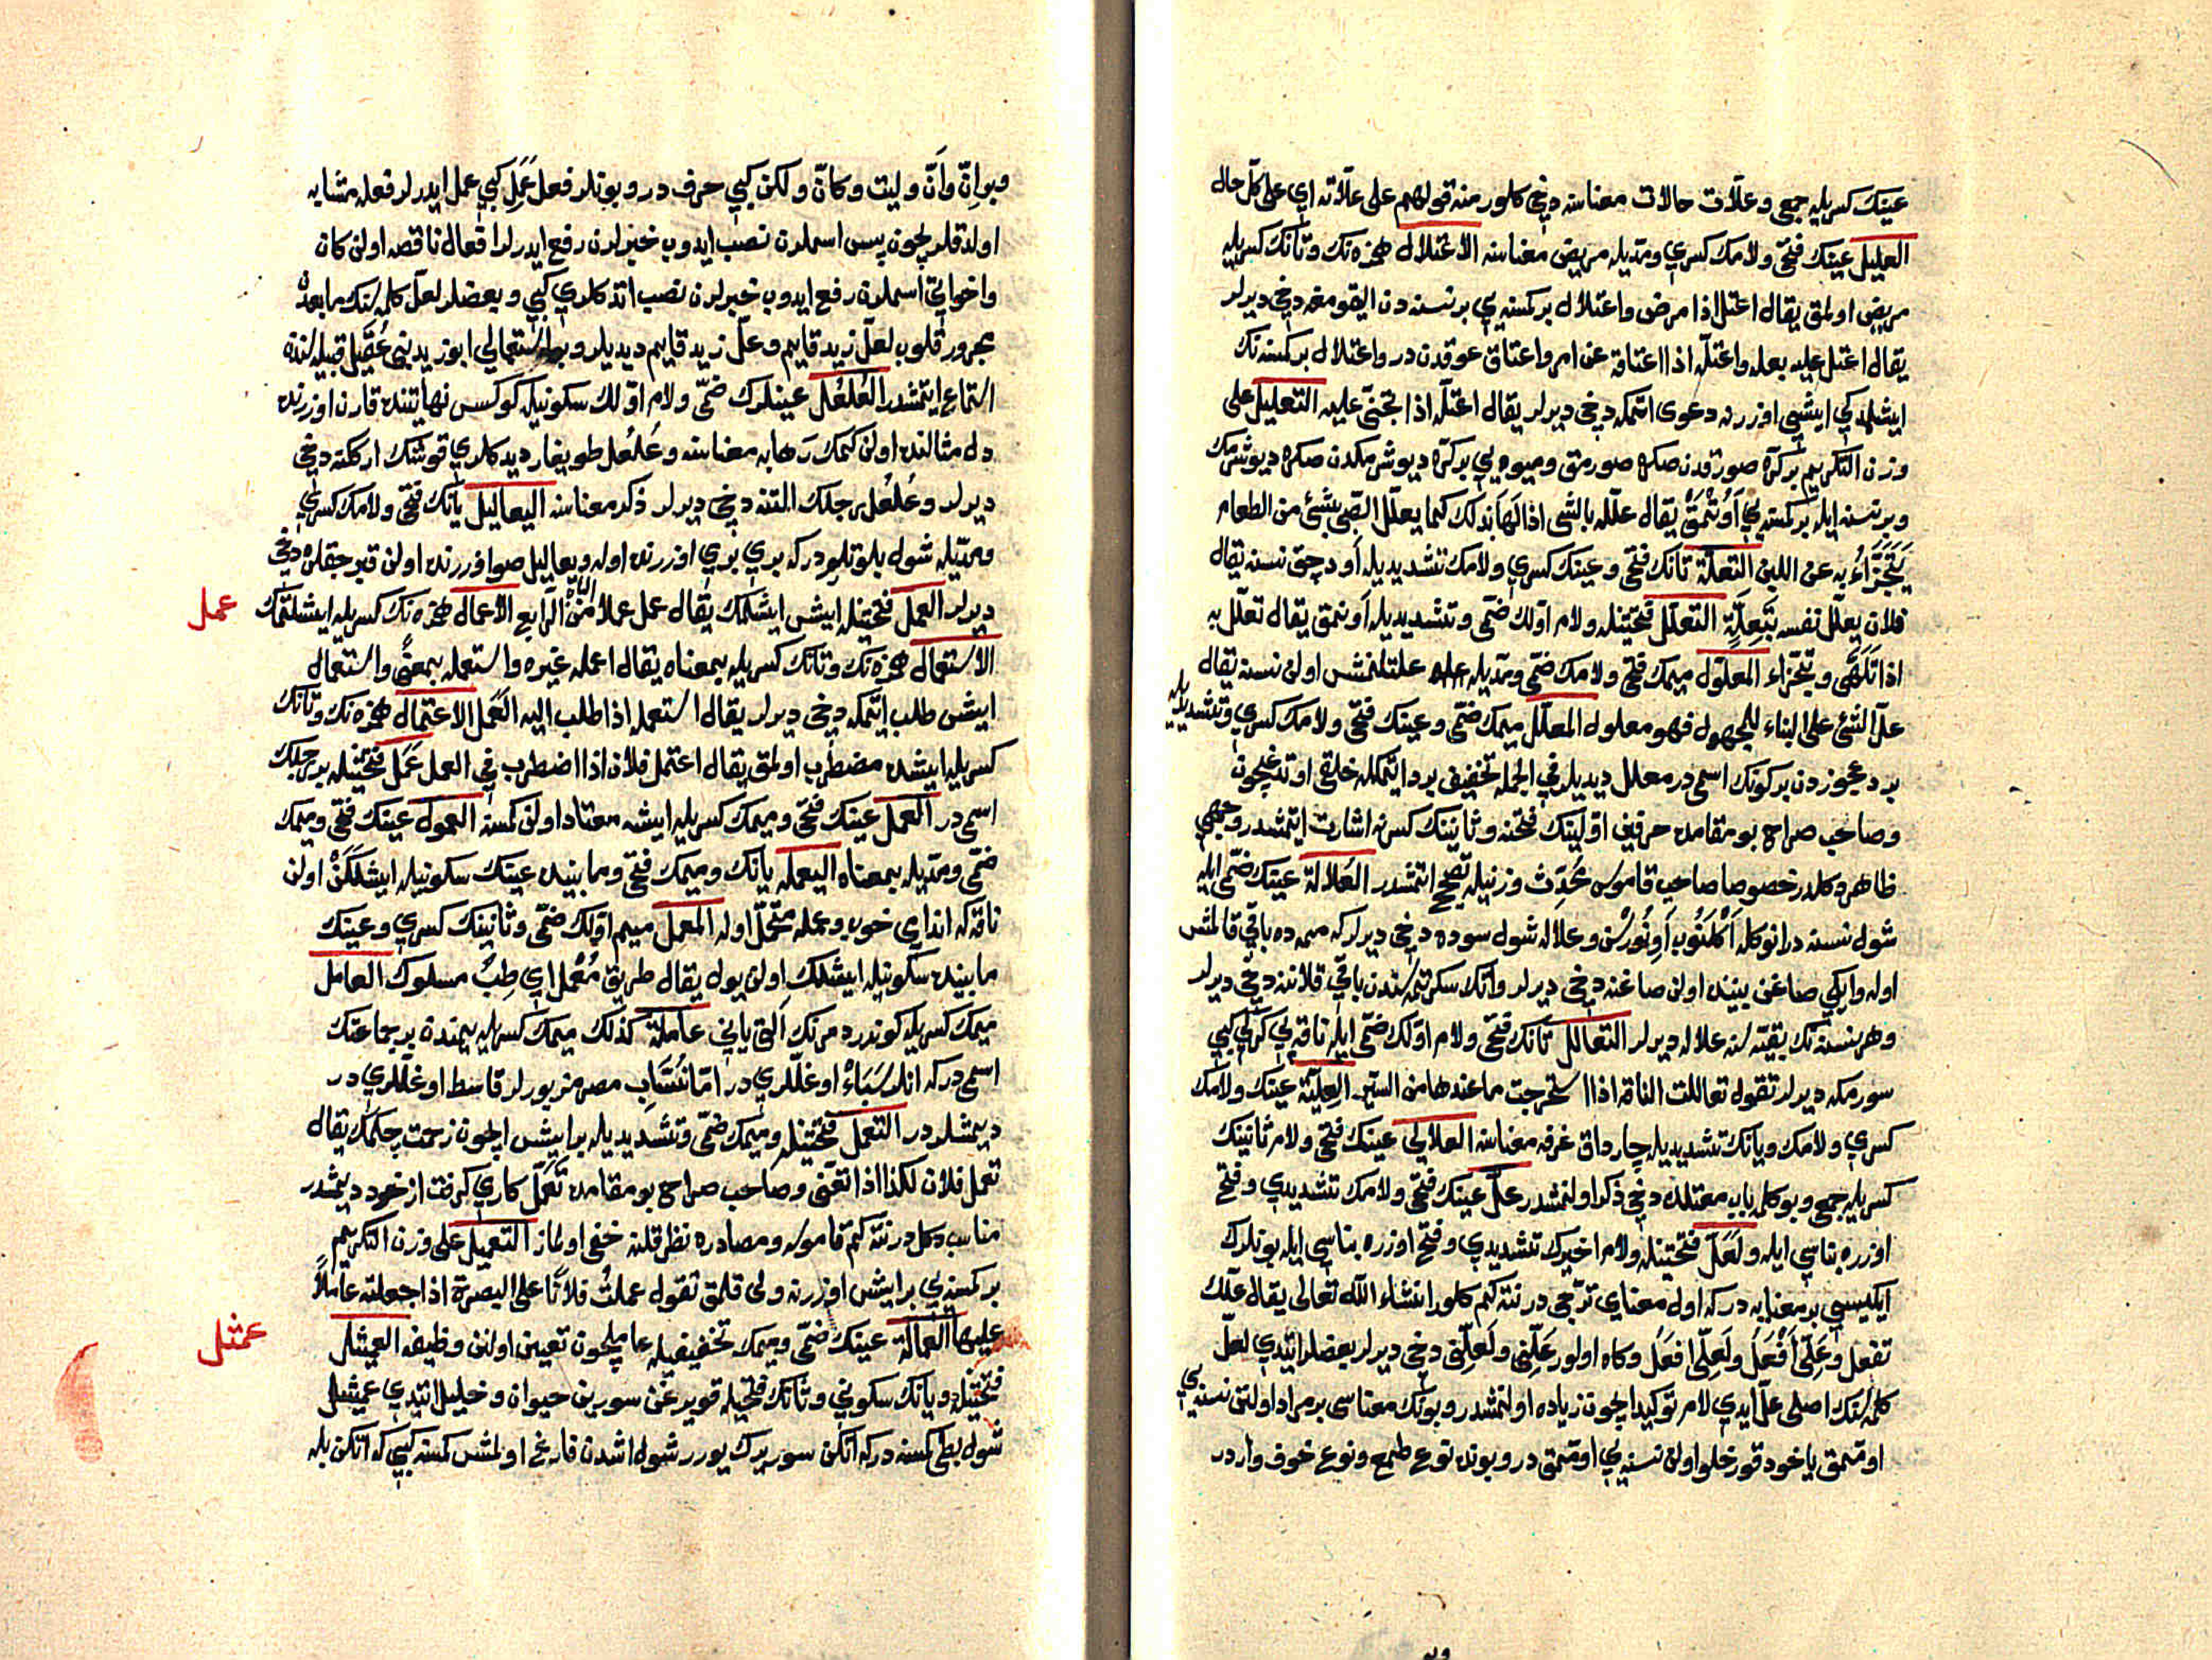 عينك كسريله جمعى وعلّات حالات معناسنه دخى كلور منه قولهم على علّاته اي على كلّ حال
العليل عينك فتحى ولامك كسري ومدّيله مريض معناسنه الاعتلال همزه نك وتانك كسريله
مريض اولمق يقال اعتل اذا مرض واعتلال بر كسنه يي بر نسنه دن اليقومغه دخى ديرلر
يقال اعتل عليه بعله واعتلّه اذا اعتاقه عن امر واعتاق عوقدن در واعتلال بر كسنه نك
ايشلمدكي ايشي اوزرنه دعوى اتمكه دخى ديرلر يقال اعتلّه اذا تجنّى عليه التعليل على
وزن التكريم بر كرّه صورقدن صكره صورمق وميوه يي بر كرّه ديوشرمكدن صكره ديوشرمك
وبر نسنه ايله بر كسنه يي اَوُتْمَقْ يقال علّله بالشى اذا لهّاه بذلك كما يعلّل الصّبى بشئ من الطعام
يَتَجَزَّاءُ به عن اللبن التعلّة تانك فتحى وعينك كسري ولامك تشديديله اَوده جق نسنه يقال
فلان يعلّل نفسه بِتَعِلَّةٍ التعلّل فتحتينله ولام اوّلك ضمّى وتشديديله اَونمق يقال تعلّل به
اذا تَلَهَّى وتجزّاء المعلول ميمك فتحى ولامك ضمّى ومدّيله علتلنمش اولن نسنه يقال
علّ الشئ على البناء للمجهول فهو معلول المعلّل ميمك ضمّى وعينك فتحى ولامك كسري وتشديديله
برد عجوزدن بر كونك اسمى در معلل ديديلر في الجمله تخفيف برد ايتمكله خلقى اوتدغيچون
وصاحب صراح بو مقامده حرفين اوّلينك فتحنه وثانينك كسرنه اشارت ايتمشدر وجهى
ظاهر دكلدر خصوصا صاحب قاموس محُدِّث وزنيله تصحيح اتمشدر العُلالة عينك ضمّى ايله
شول نسنه در انوكله اَكْلَنُوب اَوِنُورْسِن وعلاله شول سوده دخى ديرلر كه ممه ده باقي قالمش
اوله وايكي صاغن بيننده اولن صاغنه دخى ديرلر واتك سكرتمه سندن باقى قلاننه دخى ديرلر
وهر نسنه نك بقيّه سنه علاله ديرلر التعالل تانك فتحى ولام اوّلك ضمّى ايله ناقه يي كركي كبي
سورمكه ديرلر تقول تعاللت الناقة اذا استخرجت ما عندها من السير العِلِيّة عينك ولامك
كسري ولامك ويانك تشديديله چارداق غرفه معناسنه العلالي عينك فتحى ولام ثانينك
كسريله جمعى وبو كلمه باب معتلده دخى ذكر اولنمشدر علّ عينك فتحى ولامك تشديدي وفتح
اوزره بناسي ايله ولَعَلَّ فتحتينله ولام اخيرك تشديدي وفتح اوزره بناسي ايله بونلرك
ايكيسي بر معنايه در كه اول معناي ترجّى در نته كم كلور انشاء اللّه تعالى يقال علّك
تفعل وعَلّى اَفْعَلُ ولَعَلّى افعَلُ وكاه اولور عَلّنِى ولَعَلّنِى دخى ديرلر بعضلر ايتدي لعلّ
كلمه سنك اصلى علّ ايدي لام توكيد ايچون زياده اولنمشدر وبونك معناسى بر مراد اولنن نسنه يي
اومَمق ياخود قورخلو اولن نسنه يي اومَمق در وبونده نوع طمع ونوع خوف واردر
وبو اِنَّ واَنَّ وليت وكانّ ولكن كبي حرف در وبونلر فعل عَمَلِ كبي عمل ايدرلر فعله مشابه
اولدقلريچون پس اسملرن نصب ايدوب خبرلرن رفع ايدرلر افعال ناقصه اولن كان
واخواتي اسملرن رفع ايدوب خبرلرن نصب اتدكلري كبي وبعضلر لعلّ كلمه سنك ما بعدن
مجرور قلوب لعلّ زيد قايم وعلّ زيد قايم ديديلر وبو استعمالي ابو زيد بنى عُقَيل قبيله سنده
استماع ايتمشدر العُلعُل عينلرك ضمّى ولام اوّلك سكونيله كوكسى نهايتنده قارن اوزرنده
دل مثالنده اولن كمك رَهابه معناسنه وعُلعُل طويغار ديدكلري قوشك اركنه دخى
ديرلر وعُلعُل بر جلك القنه دخى ديرلر ذكر معناسنه اليعاليل يانك فتحى ولامك كسري
ومدّيله شول بلوتلردر كه بري بري اوزرنده اوله ويعاليل صو اوزرنده اولن قبرجقلره دخى
ديرلر العمل فتحتينله ايش ايشلمك يقال عمل عملا من الباب الرّابع الاعمال همزه نك كسريله ايشلتمك
عمل
الاستعمال همزه نك وتانك كسريله بمعناه يقال اعمله غيره واستعمله بمعنىً واستعمال
ايش طلب ايتمكه دخى ديرلر يقال استعمله اذا طلب اليه العَمل الاعتمال همزه نك وتانك
كسريله ايشده مضطرب اولمق يقال اعتمل فلان اذا اضطرب في العمل عَمَل فتحتينله بر رجلك
اسمى در العمل عينك فتحى وميمك كسريله ايشه معتاد اولن كمسنه العمول عينك فتحى وميمك
ضمّى ومدّيله بمعناه اليعمله يانك وميمك فتحى وما بينده عينك سكونيله ايشلكن اولن
ناقه كه انداي خوب وعمله متحمّل اوله المعمل ميم اوّلك ضمّى وثانينك كسري وعينك
ما بينده سكونيله ايشلك اولن يول يقال طريق مُعْمَل اي طِبٌ مسلوك العامل
ميمك كسريله كوندرد مرنك آلتى يانى عاملة كذلك ميمك كسريله يمنده بر جماعتك
اسمى در كه انلر سَبَاءْ اوغللري در امّا نُسّاب مصر مزبورلر قاسط اوغللري در
ديمشلردر التعمّل فتحتينله وميمك ضمّى وتشديديله بر ايش ايچون زحمت چكمك يقال
تعمل فلان لكذا اذا تعنّى وصاحب صراح بو مقامده تَعَمُّل كاري كرفت از خود ديمشدر
مناسب دكلدر نته كم قاموسه ومصادره نظر قلنه خفى اولماز التعميل على وزن التكريم
بر كمسنه يي بر ايش اوزرنه ولى قلمق تقول عملتُ فلانًا على البصرة اذا جعلته عاملاً
عليها العمالة عينك ضمّى وميمك تخفيفيله عاملچون تعيين اولنن وظيفه العميثل
عمثل
فتحتينله ويانك سكوني وثانك فتحيله قويرغن سورين حيوان وخليل ايتدي عميثل
شول بطى كمسنه در كه اتكن سوريرك يورر شول اشدن فارغ اولمش كمسنه كبي كه اتكن بله